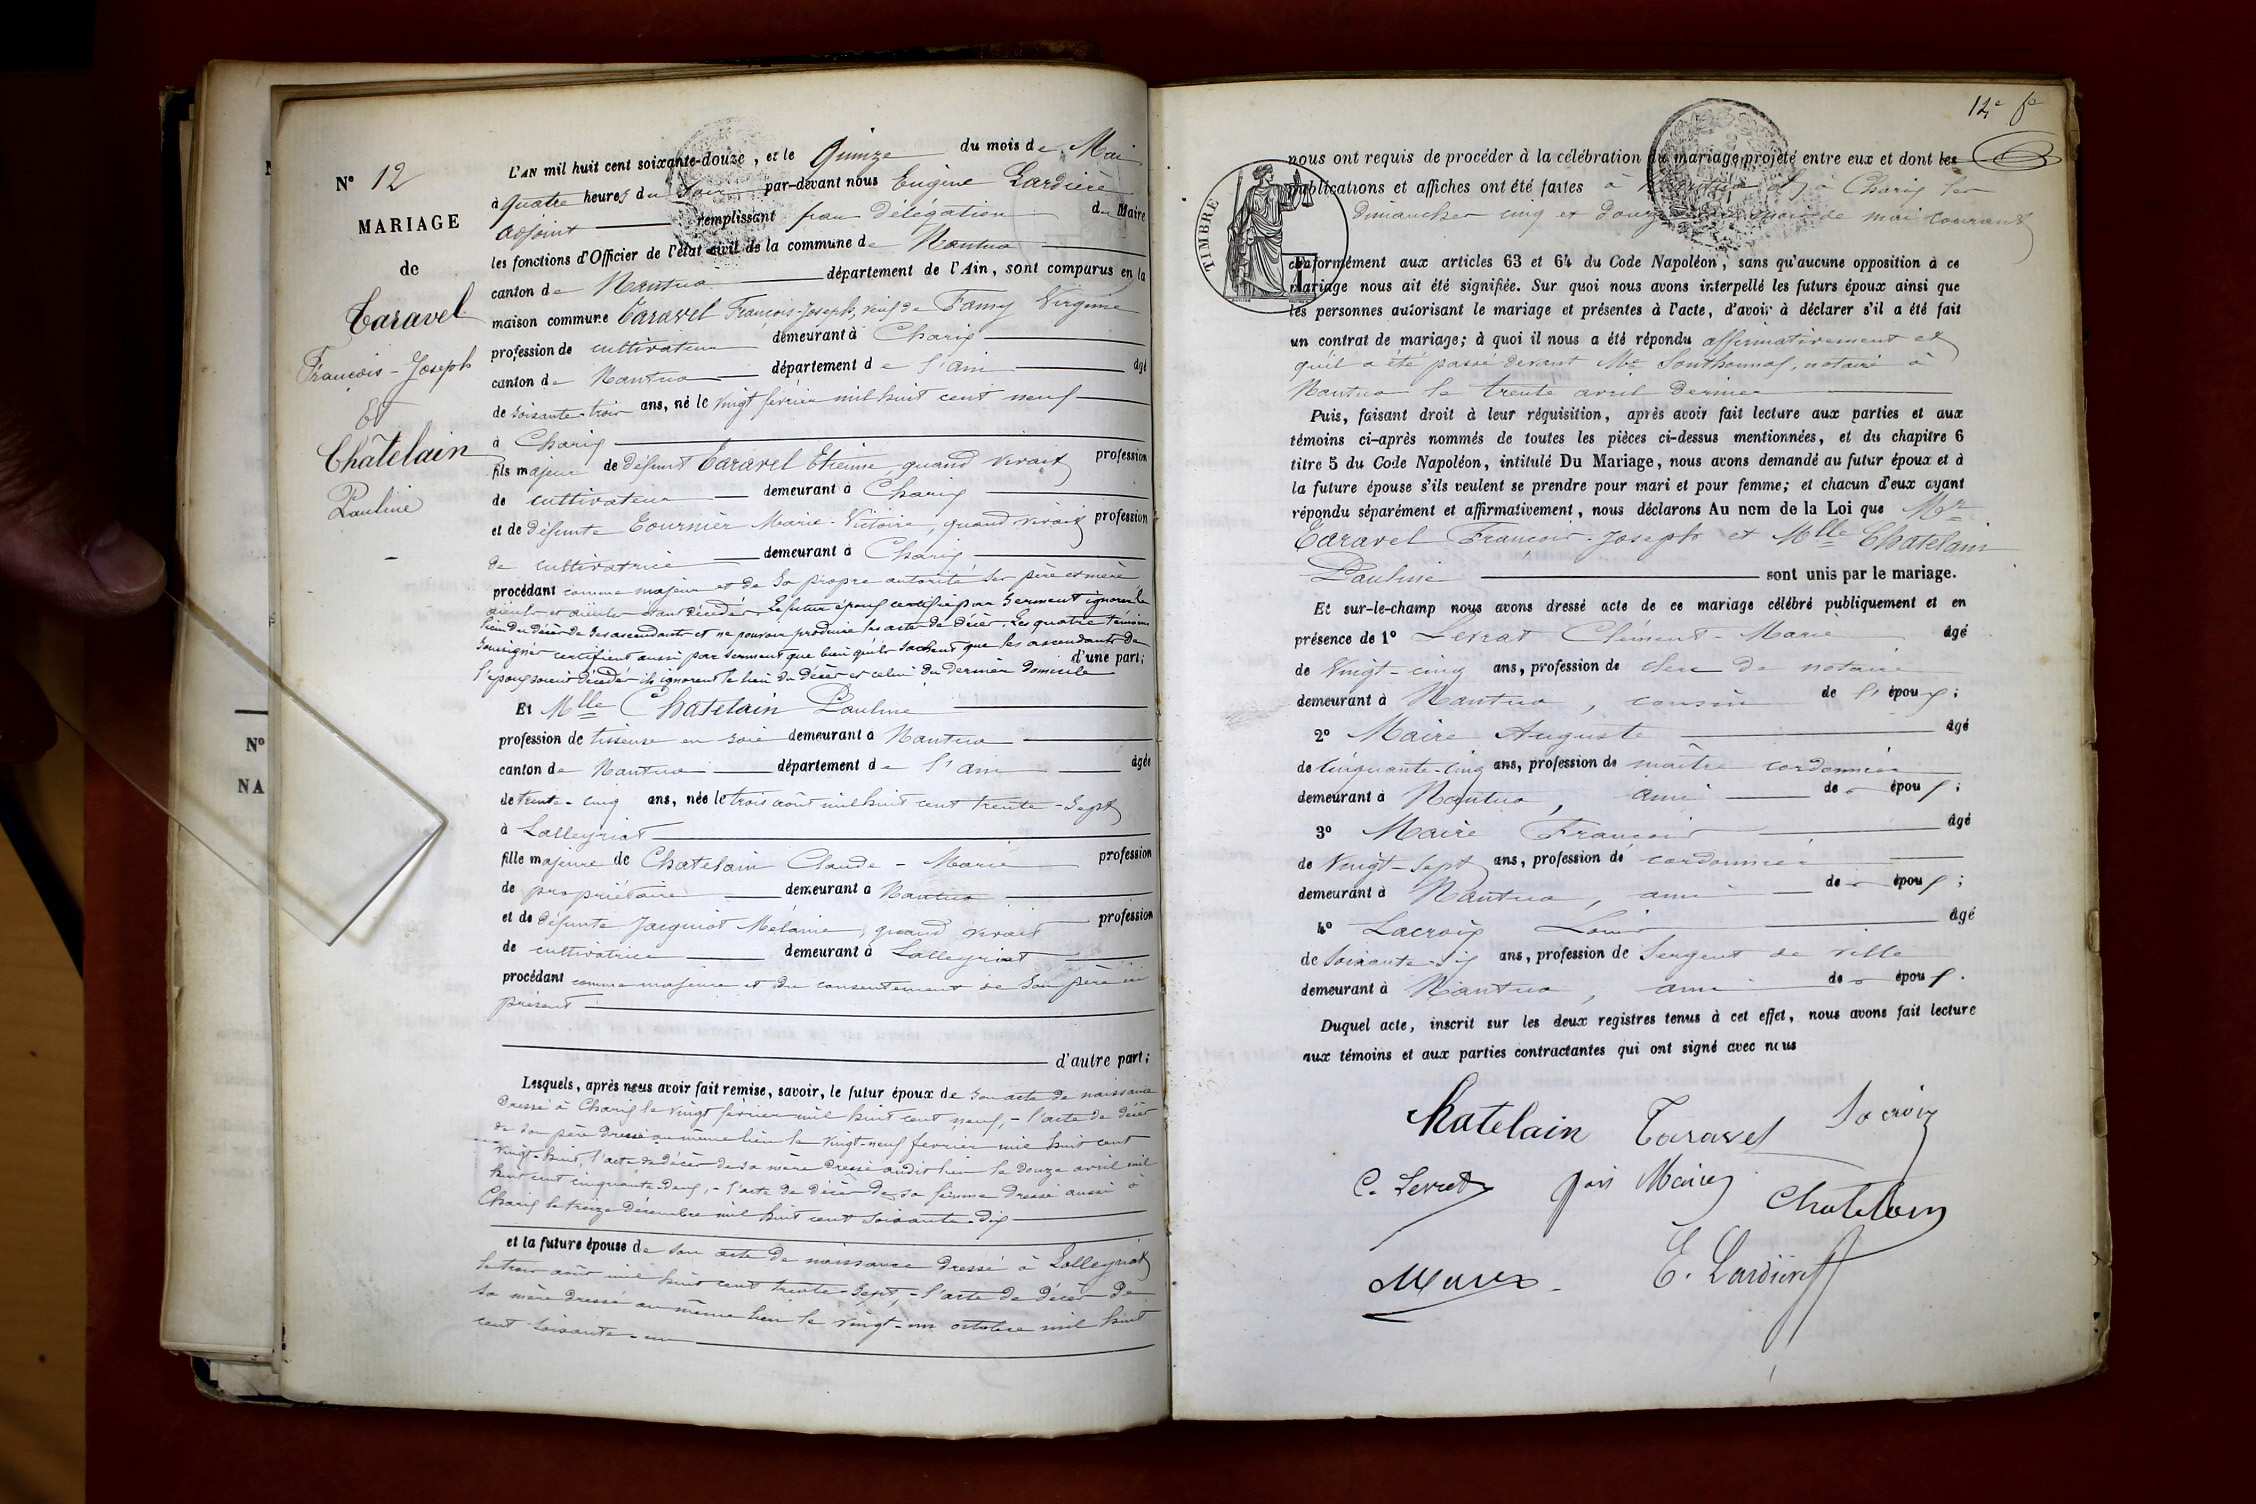 N° 12
MARIAGE
de
Taravel
François-Joseph
Et
Châtelain
Pauline
L'AN mil huit cent soixante-douze, et le Quinze du mois de Mai
à quatre heures du Soir par-devant nous Eugène Lardière
adjoint remplissant par délégation du Maire
les fonctions d'Officier de l'état civil de la commune de Nantua
canton de Nantua département de l'Ain, sont comparus en la
maison commune Taravel François-Joseph, veuf de Famy Virginie
profession de cultivateur demeurant à Charix
canton de Nantua département de l'Ain âgé
de soixante-trois ans, né le vingt février mil huit cent neuf
à Charix
fils majeur de défunt Taravel Etienne, quand vivait profession
de cultivateur demeurant à Charix
et de défunte Tournier Marie-Victoire, quand vivait profession
de cultivatrice demeurant à Charix
procédant comme majeur et de sa propre autorité ses père et mère
aïeuls et aïeules étant décédés. Le futur époux certifie par serment ignorer le
lieu du décès de ses ascendants et ne pouvoir produire les actes de décès. Les quatre témoins
soussignés certifient aussi par serment que bien qu'ils sachent que les ascendants de
l'époux soient décédés ils ignorent le lieu du décès et celui du dernier domicile d'une part;
Et Mlle Chatelain Pauline
profession de tisseuse en soie demeurant à Nantua
canton de Nantua département de l'Ain âgée
de trente-cinq ans, née le trois août mil huit cent trente-sept
à Lalleyriat
fille majeure de Chatelain Claude-Marie profession
de propriétaire demeurant à Nantua
et de défunte Jacquiot Mélanie, quand vivait profession
de cultivatrice demeurant à Lalleyriat
procédant comme majeure et du consentement de son père ici
présent
d'autre part;
Lesquels, après nous avoir fait remise, savoir, le futur époux de son acte de naissance
dressé à Charix le vingt février mil huit cent neuf, - l'acte de décès
de son père dressé au même lieu le vingt-neuf février mil huit cent
vingt-huit, l'acte de décès de sa mère dressé audit lieu le douze avril mil
huit cent cinquante-deux, - l'acte de décès de sa femme dressé aussi à
Charix le treize Décembre mil huit cent soixante-dix
et la future épouse de son acte de naissance dressé à Lalleyriat
le trois août mil huit cent trente-sept, - l'acte de décès de
sa mère dressé au même lieu le vingt-un octobre mil huit
cent soixante-un
N°
NA
14e
TIMBRE
nous ont requis de procéder à la célébration du mariage projeté entre eux et dont les
publications et affiches ont été faites à Nantua et à Charix les
dimanches cinq et douze du mois de mai courant
conformément aux articles 63 et 64 du Code Napoléon, sans qu'aucune opposition à ce
mariage nous ait été signifiée. Sur quoi nous avons interpellé les futurs époux ainsi que
les personnes autorisant le mariage et présentes à l'acte, d'avoir à déclarer s'il a été fait
un contrat de mariage; à quoi il nous a été répondu affirmativement et
qu'il a été passé devant Me Southonnax, notaire à
Nantua le trente avril dernier
Puis, faisant droit à leur réquisition, après avoir fait lecture aux parties et aux
témoins ci-après nommés de toutes les pièces ci-dessus mentionnées, et du chapitre 6
titre 5 du Code Napoléon, intitulé Du Mariage, nous avons demandé au futur époux et à
la future épouse s'ils veulent se prendre pour mari et pour femme; et chacun d'eux ayant
répondu séparément et affirmativement, nous déclarons Au nom de la Loi que Mr
Taravel François-Joseph et Mlle Chatelain
Pauline sont unis par le mariage.
Et sur-le-champ nous avons dressé acte de ce mariage célébré publiquement et en
présence de 1° Levrat Clément-Marie âgé
de Vingt-cinq ans, profession de clerc de notaire
demeurant à Nantua, cousin de l'époux;
2° Maire Auguste âgé
de Cinquante-cinq ans, profession de maître cordonnier
demeurant à Nantua, ami de époux;
3° Maire François âgé
de Vingt-sept ans, profession de cordonnier
demeurant à Nantua, ami de époux;
4° Lacroix Louis âgé
de soixante-six ans, profession de Sergent de ville
demeurant à Nantua, ami de époux.
Duquel acte, inscrit sur les deux registres tenus à cet effet, nous avons fait lecture
aux témoins et aux parties contractantes qui ont signé avec nous
Chatelain Taravel Lacroix
C. Levrat Maire Chatelain
E. Lardière